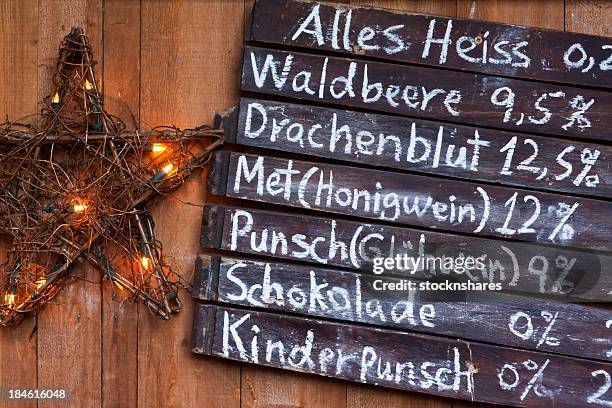 Alles Heiss 0,2
Waldbeere 9,5%
Drachenblut 12,5%
Met (Honigwein) 12%
Punsch (Glühwein) 9%
Schokolade 0%
Kinderpunsch 0% 2
iStock
Credit: stocknshares
514616048